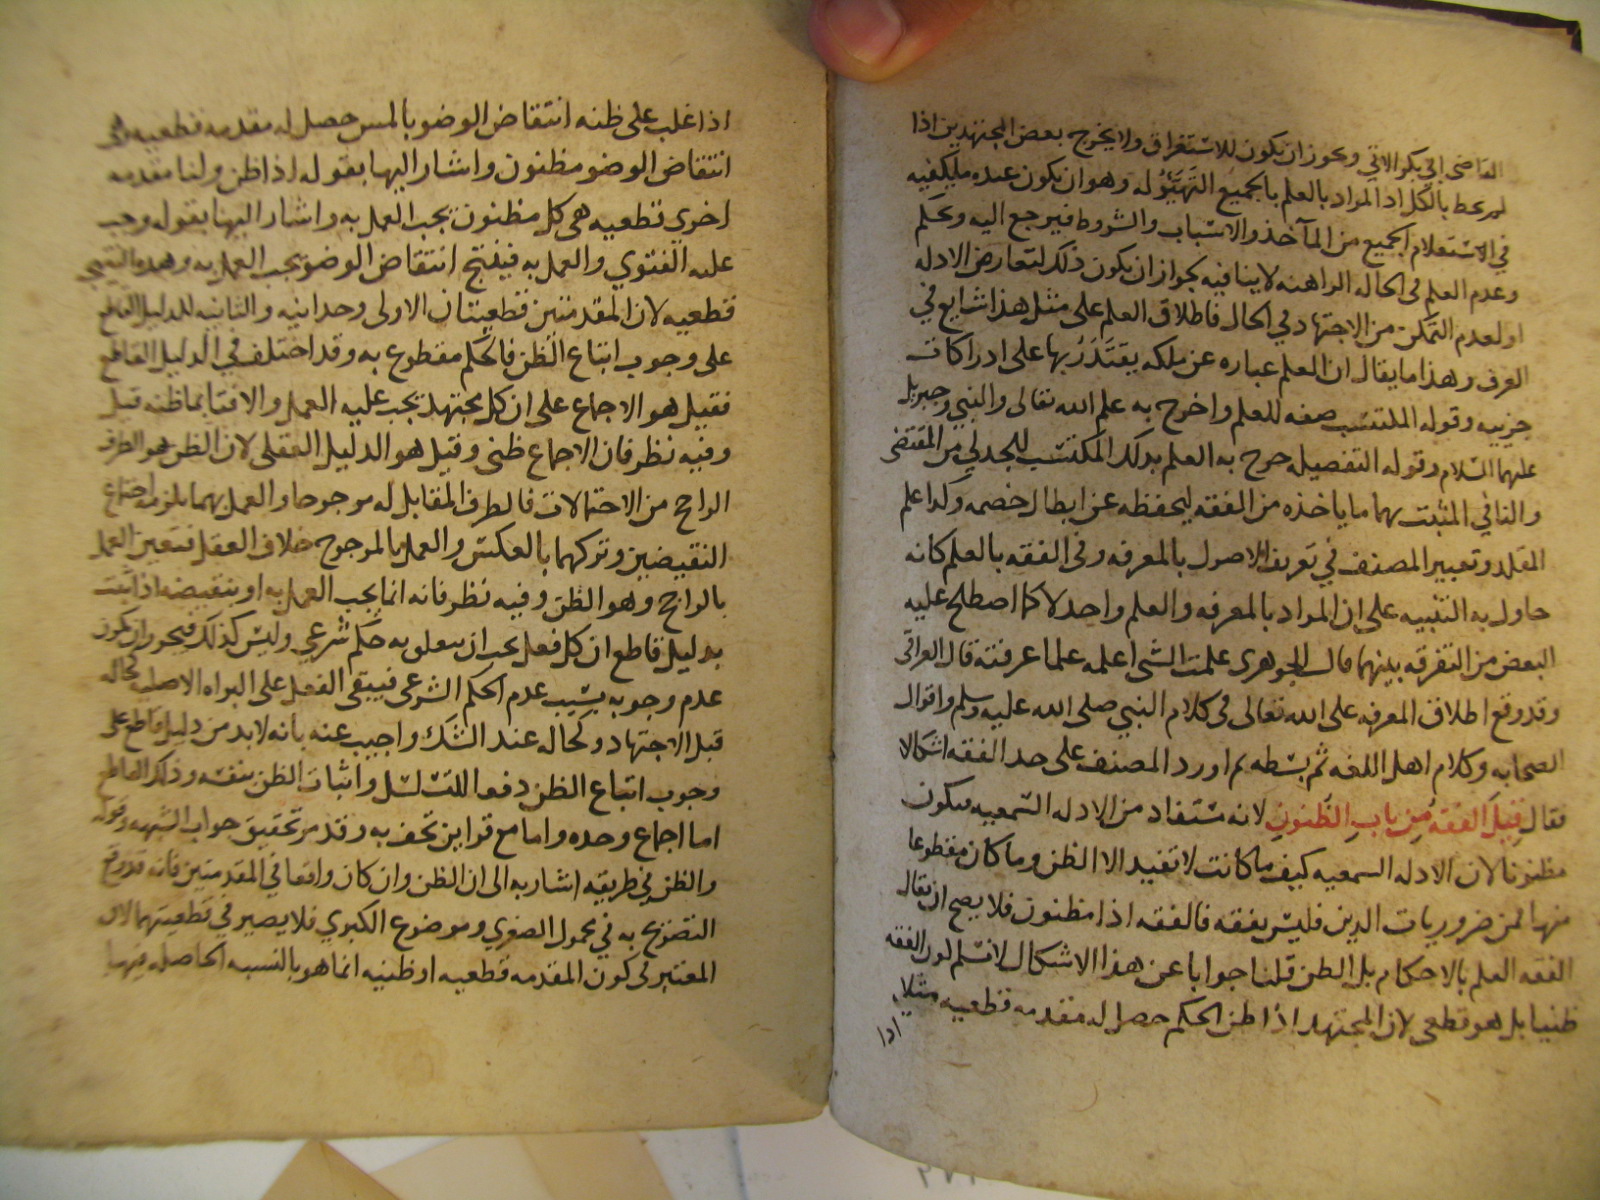 القاضي ابي بكر الاتي ويجوز ان يكون للاستغراق ولا يخرج بعض المجتهدين اذا
لم يحط بالكل اذ المراد بالعلم بالجميع التهيؤ له وهو ان يكون عنده ما يكفيه
في الاستعلام الجميع من المآخذ والاسباب والشروط فيرجع اليه ويحكم
وعدم العلم في الحاله الراهنه لا ينافيه لجواز ان يكون ذلك لتعارض الادله
او لعدم التمكن من الاجتهاد في الحال فاطلاق العلم على مثل هذا شايع في
العرف وهذا ما يقال ان العلم عباره عن ملكه يقتدر بها على ادراكات
جزييه وقوله المكتسب صفه للعلم واخرج به علم الله تعالى والنبي وجبريل
عليهما السلام وقوله التفصيليه خرج به العلم بذلك المكتسب للجدلي من المقتضى
والنافي المثبت بهما ما ياخذه من الفقه ليحفظه عن ابطال خصمه وكذا علم
المقلد وتعبير المصنف في تعريف الاصول بالمعرفه وفي الفقه بالعلم كانه
حاول به التنبيه على ان المراد بالمعرفه والعلم واحد لا كما اصطلح عليه
البعض من التفرقه بينهما قال الجوهرى علمت الشى اعلمه علما عرفته قال العراقى
وقد وقع اطلاق المعرفه على الله تعالى فى كلام النبي صلى الله عليه وسلم واقوال
الصحابه وكلام اهل اللغه ثم بسطه ثم اورد المصنف على حد الفقه اشكالا
فقال قيل الفقه من باب الظنون لانه مستفاد من الادله السمعيه فيكون
مظنونا لان الادله السمعيه كيف ما كانت لا تفيد الا الظن وما كان مقطوعا
منها فمن ضروريات الدين فليس بفقه فالفقه اذا مظنون فلا يصح ان يقال
الفقه العلم بالاحكام بل الظن قلنا جوابا عن هذا الاشكال لا نسلم كون الفقه
ظنيا بل هو قطعى لان المجتهد اذا ظن الحكم حصل له مقدمه قطعيه مثلا
اذا
اذا غلب على ظنه انتقاض الوضو بالمس حصل له مقدمه قطعيه وهى
انتقاض الوضو مظنون واشار اليها بقوله اذا ظن ولنا مقدمه
اخرى قطعيه هى كل مظنون يجب العمل به واشار اليها بقوله وجب
عليه الفتوي والعمل به فينتج انتقاض الوضو يجب العمل به وهذه النتيجه
قطعيه لان المقدمتين قطعيتان الاولى وجدانيه والثانيه للدليل القاطع
على وجوب اتباع الظن فالحكم مقطوع به وقد اختلف في الدليل القاطع
فقيل هو الاجماع على ان كل مجتهد يجب عليه العمل والافتا بما ظنه قيل
وفيه نظر فان الاجماع ظنى وقيل هو الدليل العقلى لان الظن هو الطرف
الراجح من الاحتمالات فالطرف المقابل له مرجوحا والعمل بهما يلزمه اجتماع
النقيضين وتركهما بالعكس والعمل بالمرجوح خلاف العقل فتعين العمل
بالراجح وهو الظن وفيه نظر فانه انما يجب العمل به او بنقيضه اذا ثبت
بدليل قاطع ان كل فعل يجب ان يتعلق به حكم شرعي وليس كذلك فيجوز ان يكون
عدم وجوبه بسبب عدم الحكم الشرعي فيبقى الفعل على البراه الاصليه كحاله
قبل الاجتهاد وكحاله عند الشك واجيب عنه بانه لابد من دليل قاطع على
وجوب اتباع الظن دفعا للتسلسل واثبات الظن بنفسه وذلك القاطع
اما اجماع وحده واما مع قراين تحف به وقد مر تحقيق جواب الشبهه وقوله
والظن في طريقه اشار به الى ان الظن وان كان واقعا في المقدمتين فانه قد وقع
التصريح به في محمول الصغرى وموضوع الكبرى فلا يصير في قطعيتهما لان
المعتبر في كون المقدمه قطعيه او ظنيه انما هو بالنسبه الحاصله فيها